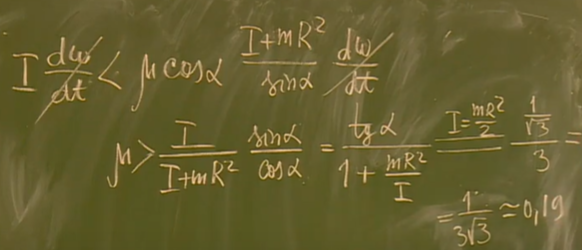 I dω/dt < μ cosα (I+mR²)/sinα dω/dt
μ > I/(I+mR²) sinα/cosα = tgα/(1 + mR²/I) = I = mR²/2 (1/√3)/3 =
= 1/(3√3) ≃ 0,19